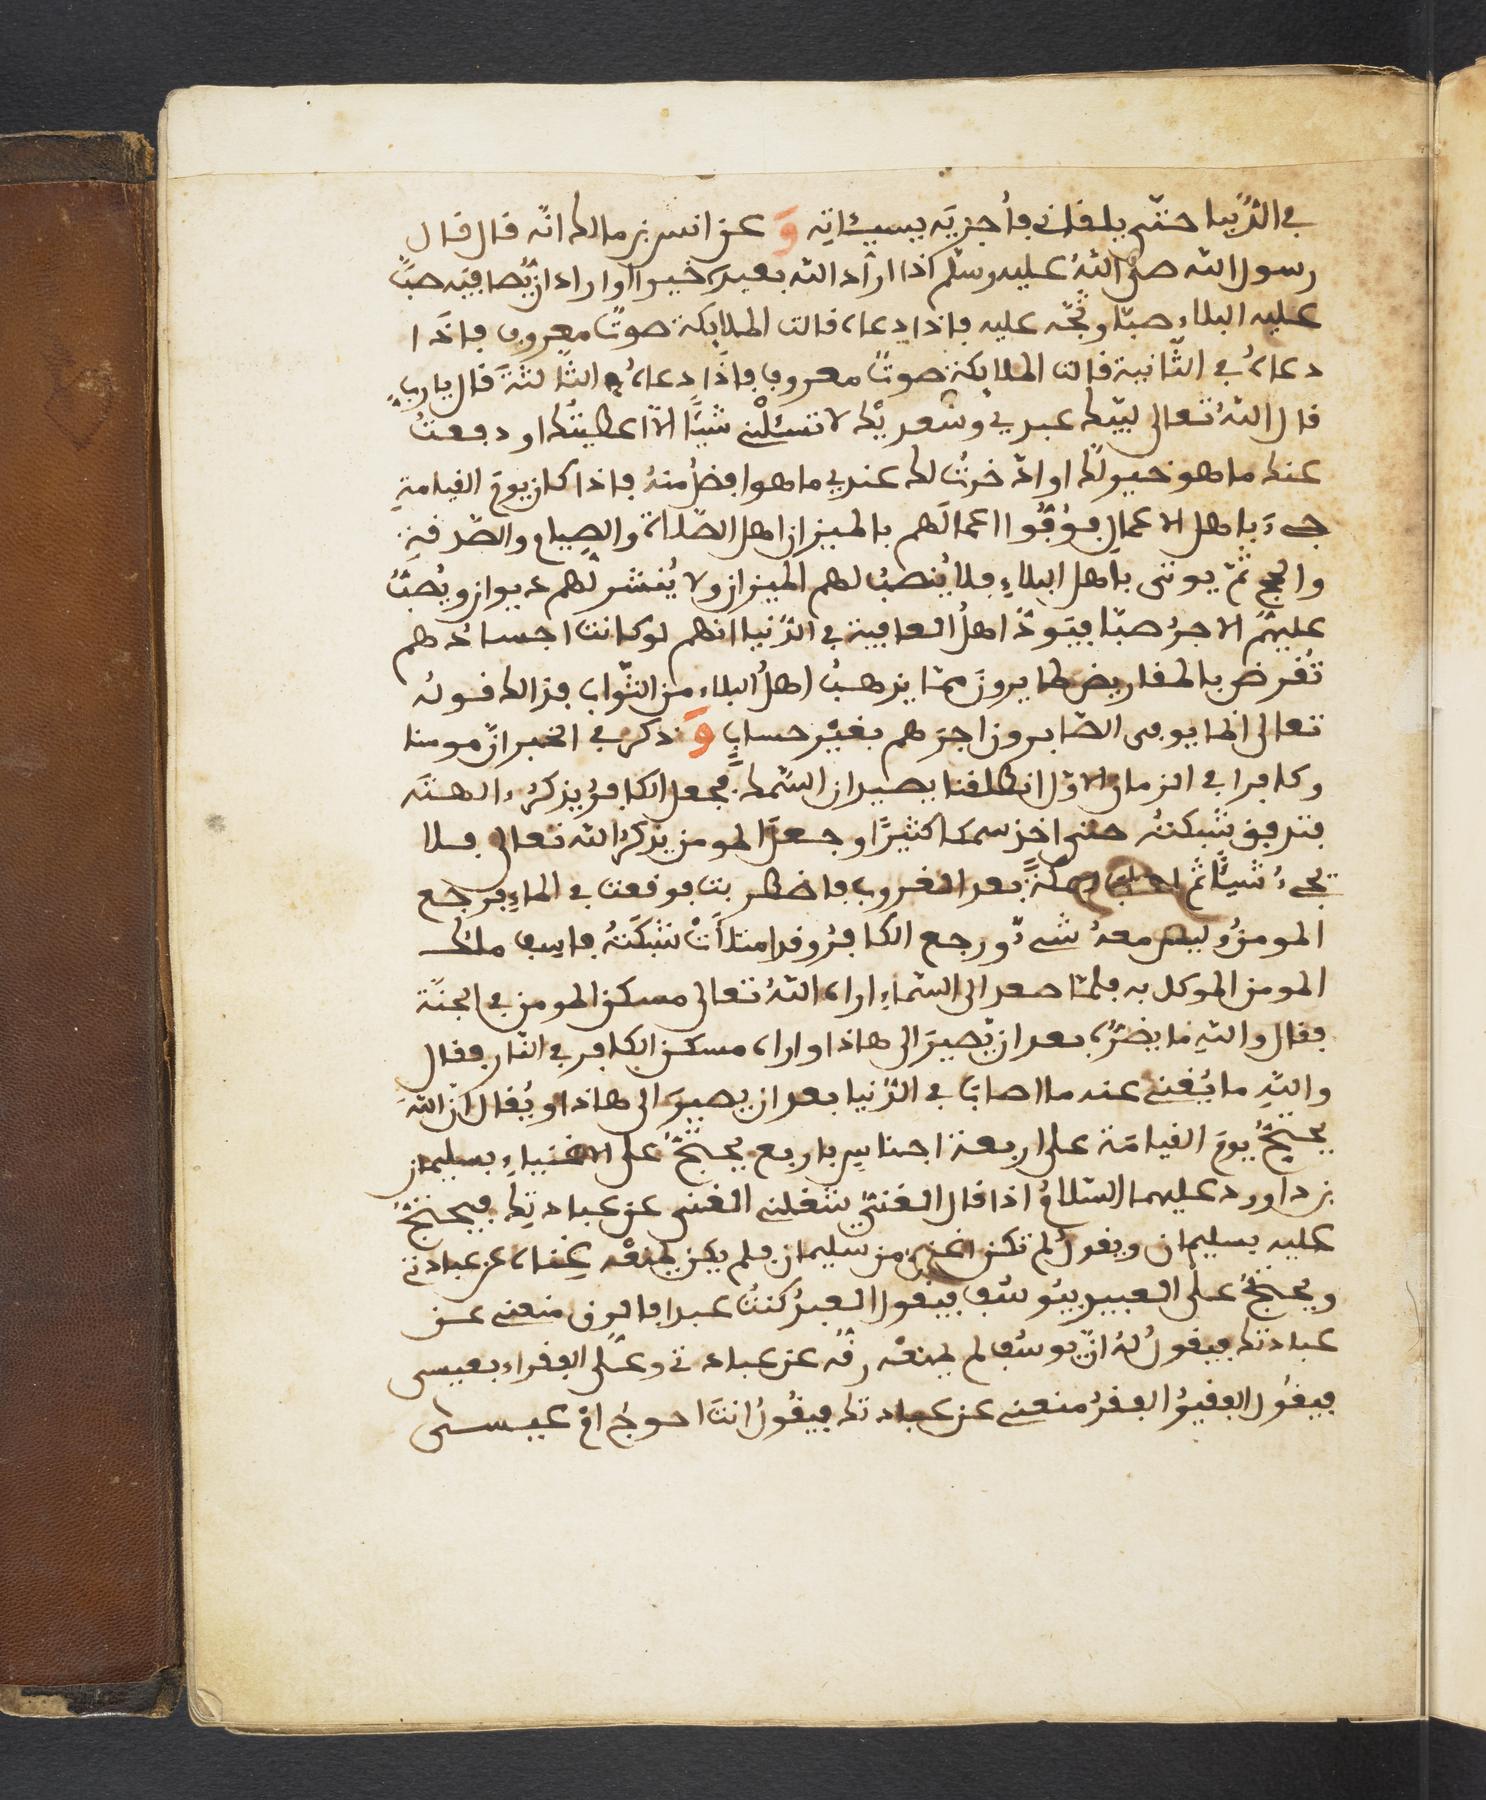 في الدّنيا حتّى يلقاني فأجزيَه بسيئاتِه وَعن انس بن مالك انّه قال قال
رسول الله صلّى اللهُ عليه وسلّم اذا ارَاد الله بعبدٍ خيرا او اراد ان يّصافيَه صبّ
عليه البلاء صبّا وثجّه عليه فاذا دعاه قالت الملايكة صوتٌ معروف فاذا
دعاهُ في الثّانية قالت الملايكة صوتٌ معروف فاذا دعاهُ في الثّالثة قال يا ربِّ
قال اللهُ تعالى لبّيك عبدي وسَعديْك لا تسئلْني شيئًا الّا اعطيتُك او دفعتُ
عنك ما هو خير لّك او ادّخرتُ لك عندي ما هو افضلُ منهُ فاذا كان يومُ القيامةِ
جيءَ باهل الاعمال فوُفّوا اعمالَهم بالميزان اهل الصّلاة والصيام والصّدقةِ
والحج ثمّ يوتى باهل البلاءِ فلا يُنصبُ لهم الميزان ولا يُنشر لهم ديوان ويُصبُّ
عليهمُ الاجرُ صبّا فيَودّ اهلُ العافية في الدّنيا انهم لو كانت اجسادُهم
تُقرض بالمقاريض لما يرون ممّا يذهبُ اهلُ البلاء من الثّواب فذالك قولهُ
تعالى انما يوفى الصّابرون اجرَهم بغيْر حسابٍ وَذكر في الخبر انّ مومنا
وكافرا في الزمان الاوّل انطلقا يصيدان السّمك فجعل الكافرُ يذكرُ الهتَه
فتدفق شبكتهُ حتى اخذ سمكا كثيرًا وجعل المومن يذكرُ الله تعالى فلا
تجيءُ شيئًا ثم سمكةً بعد الغروب فاضطربت فوقعت في الماءِ فرجع
المومنُ وليس معهُ شيءٌ ورجع الكافرُ وقد امتلأتْ شبكتهُ فاسِف ملكُ
المومن الموكل به فلمّا صعد الى السّماءِ اراه اللهُ تعالى مسكن المومن في الجنّة
فقال والله ما يضرّه بعد ان يّصيرَ الى هاذا واراه مسكن الكافر في النّار فقال
واللهِ ما يُغني عنه ما اصاب في الدّنيا بعد ان يصيرَ الى هاذا ويُقال انّ اللهَ
يحتجُّ يومَ القيامَة على اربعة اجناس باربع يحتجُّ على الاغنياءِ بسليمان
بن داود عليهما السّلامُ اذا قال الغنيّ شغلني الغنى عن عبادتك فيحتجُّ
عليه بسليمان ويقولُ لم تكن اغنى من سليمان فلم يكن يمنعْه غِناه عن عبادتي
ويحتجُّ على العبيد بيُوسُف فيقول العبدُ كنتُ عبدا فالرق منعني عن
عبادتك فيقولُ لهُ انّ يوسُف لم يمنعْه رقُّه عن عبادتي وعلى الفقراء بعيسى
فيقُول الفقيرُ الفقرُ منعني عن عبادتك فيقُولُ انتَ احوجُ امْ عيسى